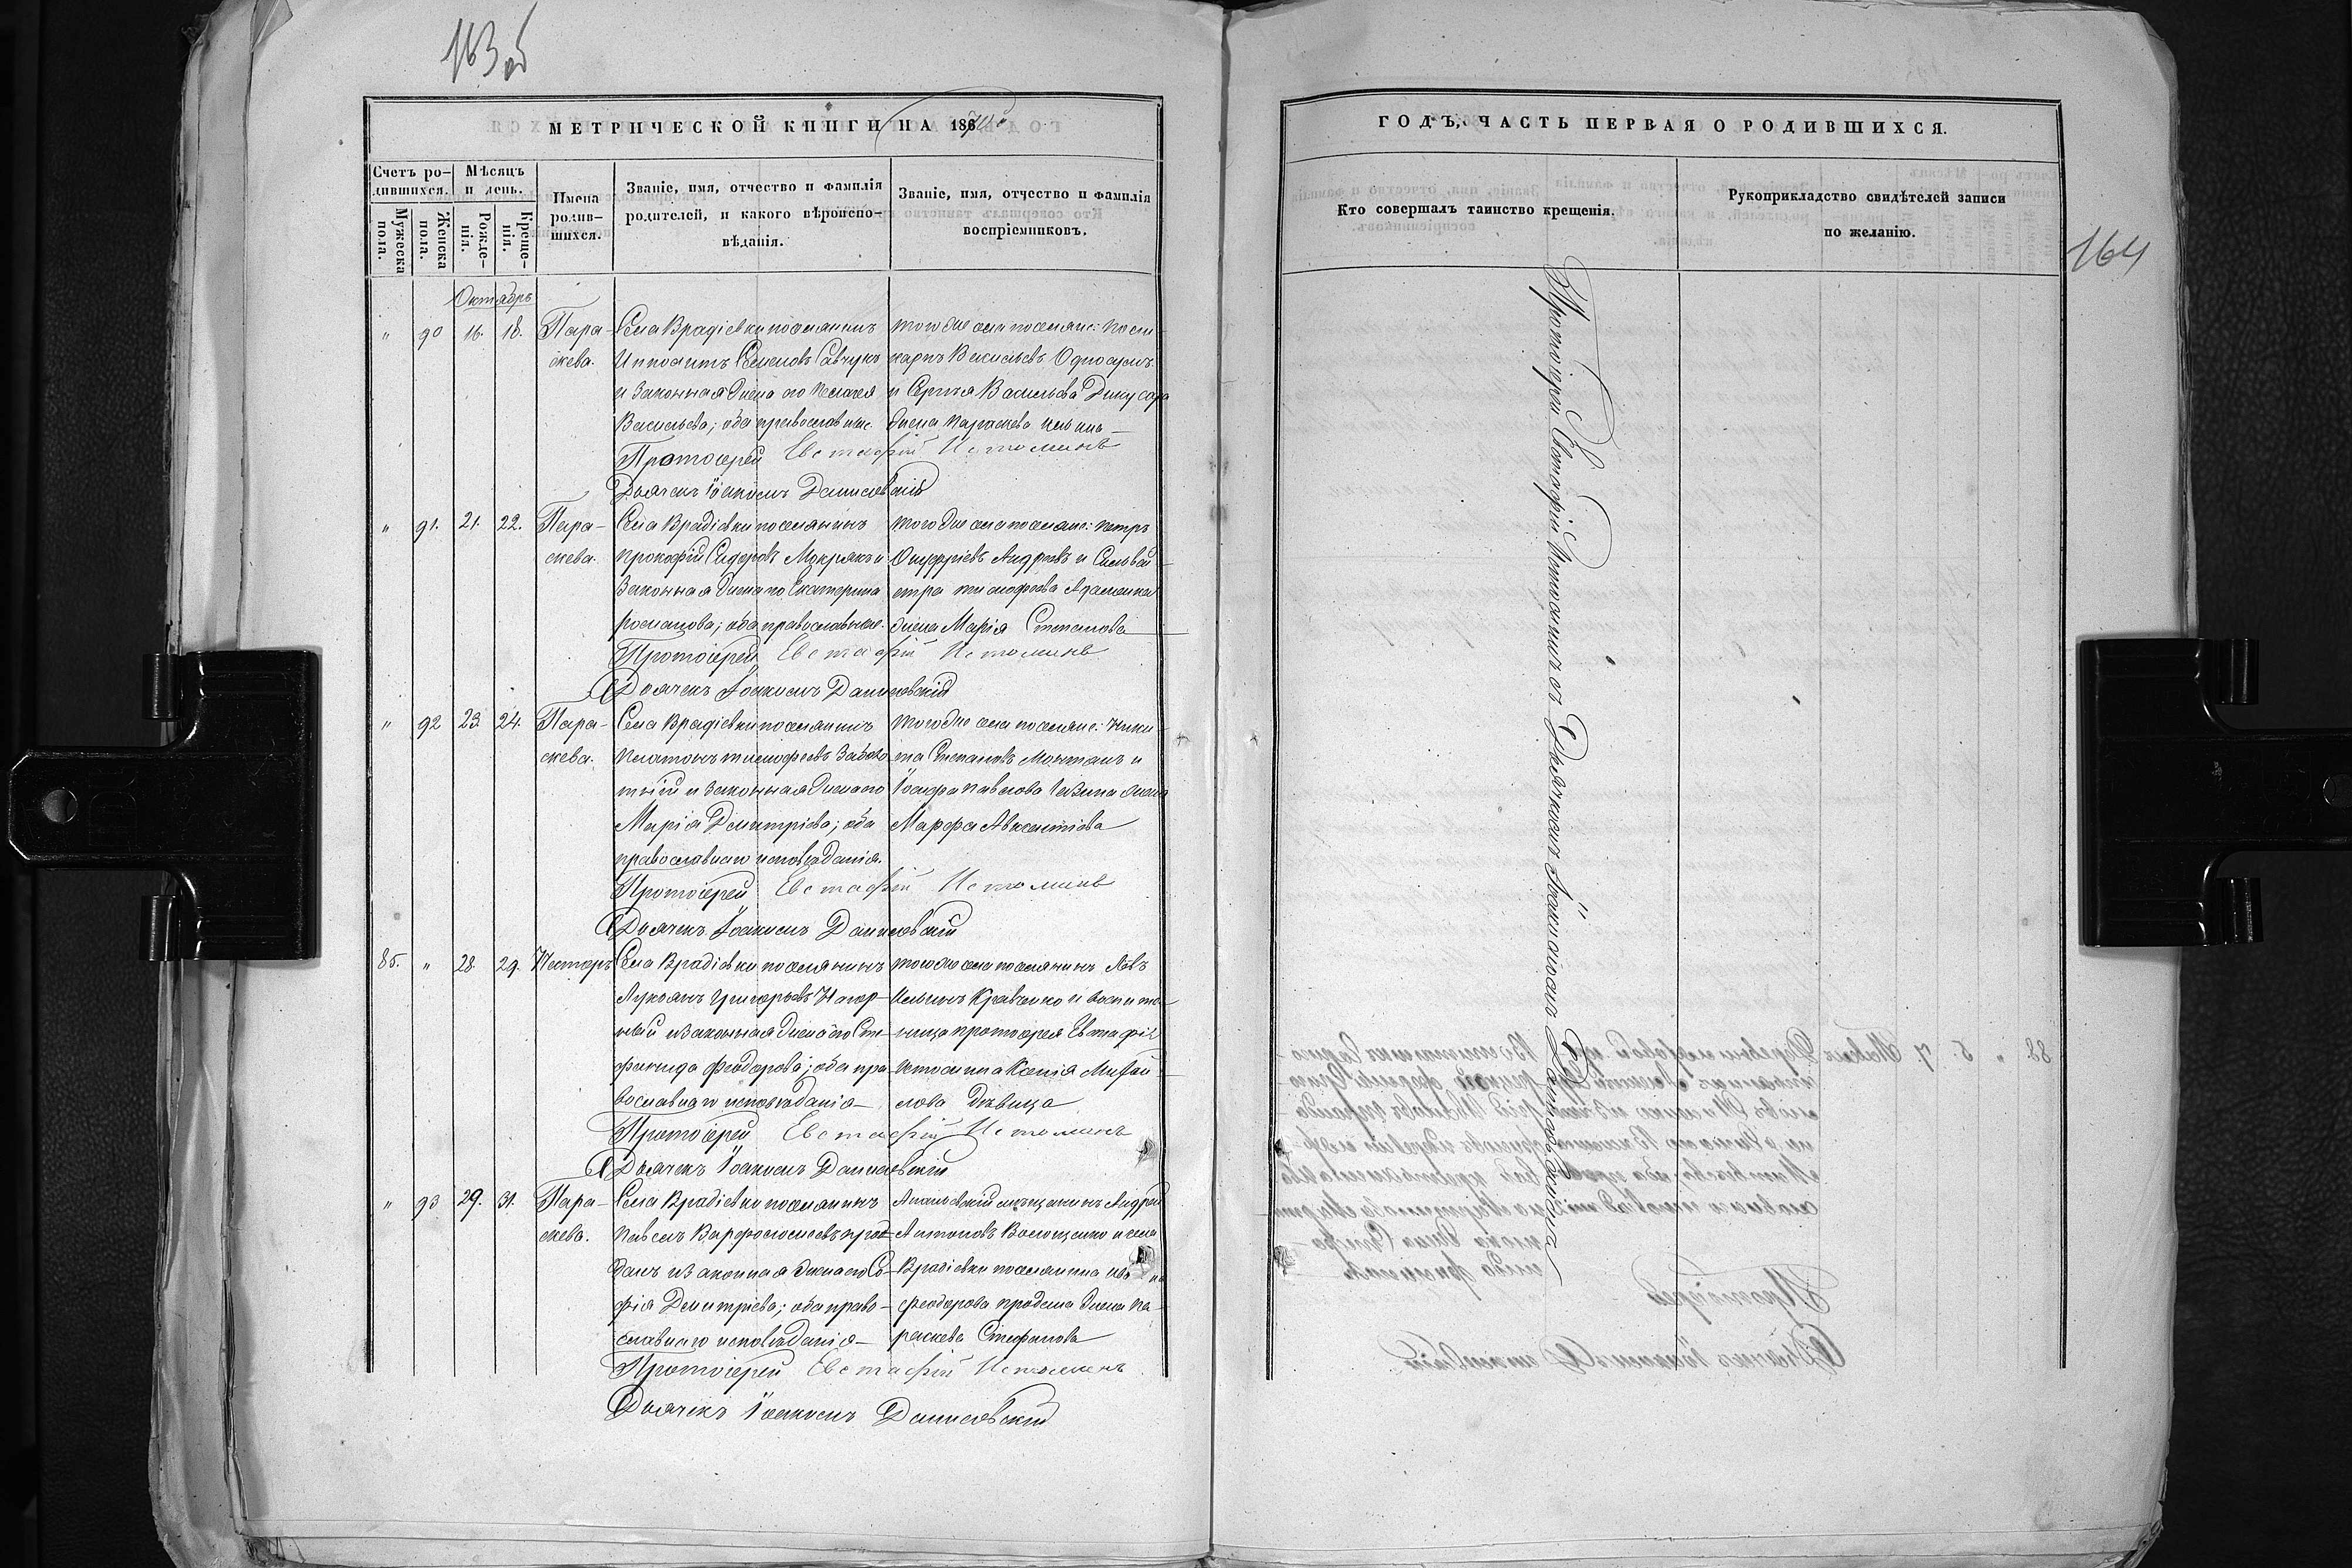 163 об
МЕТРИЧЕСКОЙ КНИГИ НА 186
Счетъ ро-
дившихся.
Мѣсяцъ
и день.
Мужеска
пола.
Женска
пола.
Рожде-
нія.
Креще-
нія.
Имена
родив-
шихся.
Званіе, имя, отчество и фамилія
родителей, и какого вѣроиспо-
вѣданія.
Званіе, имя, отчество и фамилія
воспріемниковъ.
Октябрь
" 90 16. 18. Пара-
скева.
Села Врадіевки поселянинъ
Ипполитъ Семеновъ Савчукъ
и законная жена его Пелагея
Васильева; оба православные.
того же села поселяне: Поли-
карпъ Васильевъ
и Сергія Васильева
жена Параскева
Протоіерей Евстафій Истоминъ
Дьячекъ Іоакимъ Данилевскій
" 91. 21. 22. Пара-
скева.
Села Врадіевки поселянинъ
Прокофій Сидоровъ Мокрякъ и
законная жена его Екатерина
Романова; оба православные.
того же села поселяне: Петръ
Онуфріевъ и Сильве-
стра Тимофеева
жена Марія Степанова
Протоіерей Евстафій Истоминъ
Дьячекъ Іоакимъ Данилевскій
" 92 23. 24. Пара-
скева.
Села Врадіевки поселянинъ
Платонъ Тимофеевъ
и законная жена его
Марія Димитріева; оба
православнаго исповѣданія.
того же села поселяне: Ники-
та Степановъ и
Іосифа Павлова жена
Марфа Авксентіева
Протоіерей Евстафій Истоминъ
Дьячекъ Іоакимъ Данилевскій
85. " 28. 29. Несторъ
Села Врадіевки поселянинъ
Лукіянъ Григорьевъ Нагор-
ный и законная жена его Сте-
фанида Феодорова; оба пра-
вославнаго исповѣданія
того же села поселянинъ Левъ
Ильинъ Кравченко и воспита-
ница протоіерея Евстафія
Истомина Ксенія Михай-
лова дѣвица
Протоіерей Евстафій Истоминъ
Дьячекъ Іоакимъ Данилевскій
" 93 29. 31. Пара-
скева.
Села Врадіевки поселянинъ
Павелъ Варфоломеевъ Прод-
анъ и законная жена его Со-
фія Димитріева; оба право-
славнаго исповѣданія
Ананьевскій мѣщанинъ Андрей
Антоновъ Волощенко и села
Врадіевки поселянина
Феодорова Продана жена Па-
раскева Стефанова
Протоіерей Евстафій Истоминъ
Дьячекъ Іоакимъ Данилевскій
ГОДЪ, ЧАСТЬ ПЕРВАЯ О РОДИВШИХСЯ.
Кто совершалъ таинство крещенія.
Рукоприкладство свидѣтелей записи
по желанію.
164
Протоіерей Евстафій Истоминъ съ Дьячкомъ Іоакимомъ